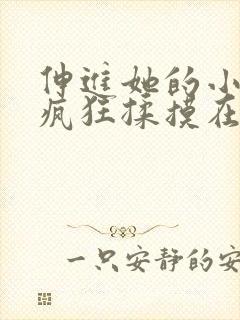 伸进她的小
疯狂揉摸在
一只安静的安